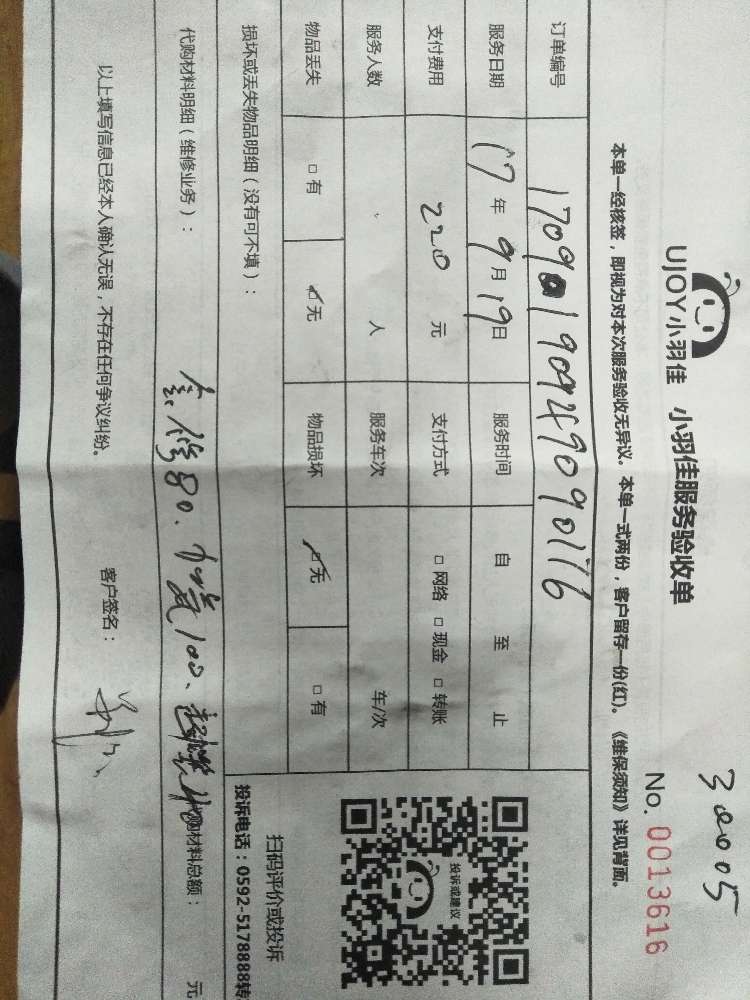 30005
UJOY小羽佳 小羽佳服务验收单
No. 0013616
本单一经核签，即视为对本次服务验收无异议。本单一式两份，客户留存一份(红)。《维保须知》详见背面。
订单编号
服务日期 17年 9月 19日 服务时间 自 至 止
支付费用 220 元 支付方式 □ 网络 □ 现金 □ 转账
服务人数 人 服务车次 车/次
物品丢失 □ 有 ☑ 无 物品损坏 ☑ 无 □ 有
损坏或丢失物品明细（没有可不填）：
投诉或建议
扫码评价或投诉
投诉电话：0592-5178888转
代购材料明细（维修业务）： 80、100、40 代购材料总额： 元
以上填写信息已经本人确认无误，不存在任何争议纠纷。 客户签名：